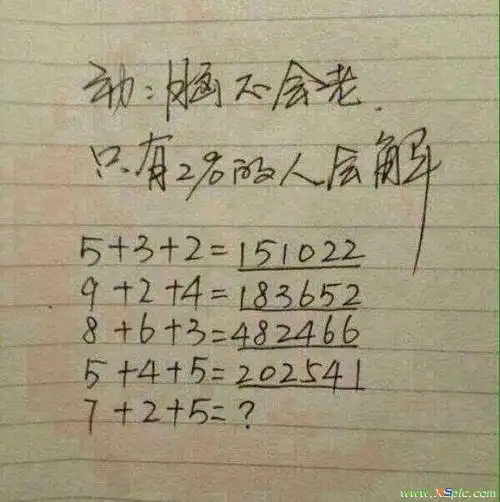 动:脑不会老.
只有2%的人会解
5+3+2=151022
9+2+4=183652
8+6+3=482466
5+4+5=202541
7+2+5=?
www.XSpic.com